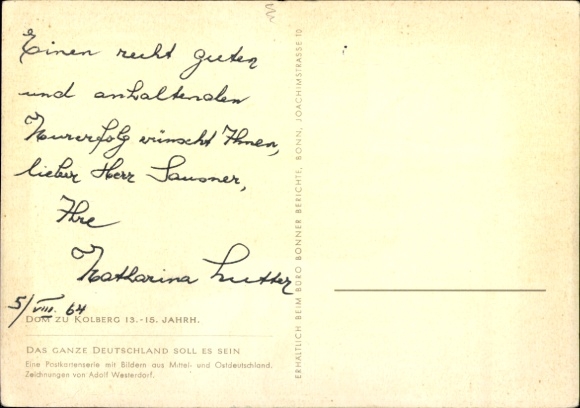 Einen recht guten
und anhaltenden
Kurerfolg wünscht Ihnen,
lieber Herr Sausner,
Ihre
Katharina Lutter
5/VIII. 64
DOM ZU KOLBERG 13.-15. JAHRH.
DAS GANZE DEUTSCHLAND SOLL ES SEIN
Eine Postkartenserie mit Bildern aus Mittel- und Ostdeutschland.
Zeichnungen von Adolf Westerdorf.
ERHÄLTLICH BEIM BÜRO BONNER BERICHTE, BONN, JOACHIMSTRASSE 10